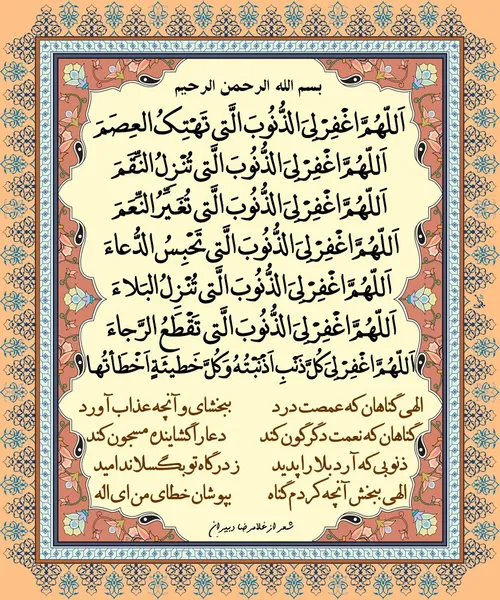 بسم الله الرحمن الرحیم
اَللّهُمَّ اغْفِرْ لِیَ الذُّنُوبَ الَّتی تَهْتِکُ العِصَمَ
اَللّهُمَّ اغْفِرْ لِیَ الذُّنُوبَ الَّتی تُنْزِلُ النِّقَمَ
اَللّهُمَّ اغْفِرْ لِیَ الذُّنُوبَ الَّتی تُغَیِّرُ النِّعَمَ
اَللّهُمَّ اغْفِرْ لِیَ الذُّنُوبَ الَّتی تَحْبِسُ الدُّعاءَ
اَللّهُمَّ اغْفِرْ لِیَ الذُّنُوبَ الَّتی تُنْزِلُ البَلاءَ
اَللّهُمَّ اغْفِرْ لِیَ الذُّنُوبَ الَّتی تَقْطَعُ الرَّجاءَ
اَللّهُمَّ اغْفِرْ لِی کُلَّ ذَنْبٍ اَذْنَبْتُهُ وَ کُلَّ خَطیئَةٍ اَخْطَأتُها
الهی گناهان که عصمت درد ببخشای و آنچه عذاب آورد
گناهان که نعمت دگرگون کند دعا را گشاینده مسجون کند
ذنوبی که آرد بلا را پدید ز درگاه تو بگسلاند امید
الهی ببخش آنچه کردم گناه بپوشان خطای من ای اله
شعر از غلامرضا دبیران